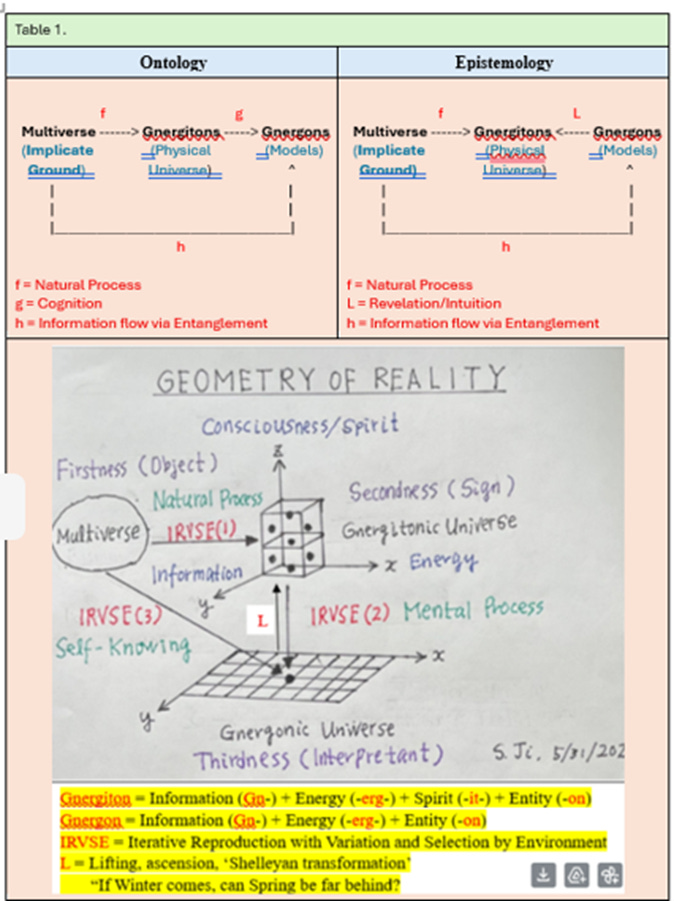 Table 1.
Ontology
Epistemology
f g
Multiverse ------> Gnergitons ----> Gnergons
(Implicate (Physical (Models)
Ground) Universe) ^
h
f = Natural Process
g = Cognition
h = Information flow via Entanglement
f L
Multiverse ------> Gnergitons <----- Gnergons
(Implicate (Physicsl (Models)
Ground) Universe) ^
h
f = Natural Process
L = Revelation/Intuition
h = Information flow via Entanglement
GEOMETRY OF REALITY
Consciousness/Spirit
z
Firstness (Object)
Natural Process
Secondness (Sign)
Multiverse
IRVSE(1)
Gnergitonic Universe
Information
x Energy
y
IRVSE(3)
L
IRVSE(2) Mental Process
Self-Knowing
x
y
Gnergonic Universe
Thirdness (Interpretant)
S. Ji, 5/31/202
Gnergiton = Information (Gn-) + Energy (-erg-) + Spirit (-it-) + Entity (-on)
Gnergon = Information (Gn-) + Energy (-erg-) + Entity (-on)
IRVSE = Iterative Reproduction with Variation and Selection by Environment
L = Lifting, ascension, ‘Shelleyan transformation’
“If Winter comes, can Spring be far behind?